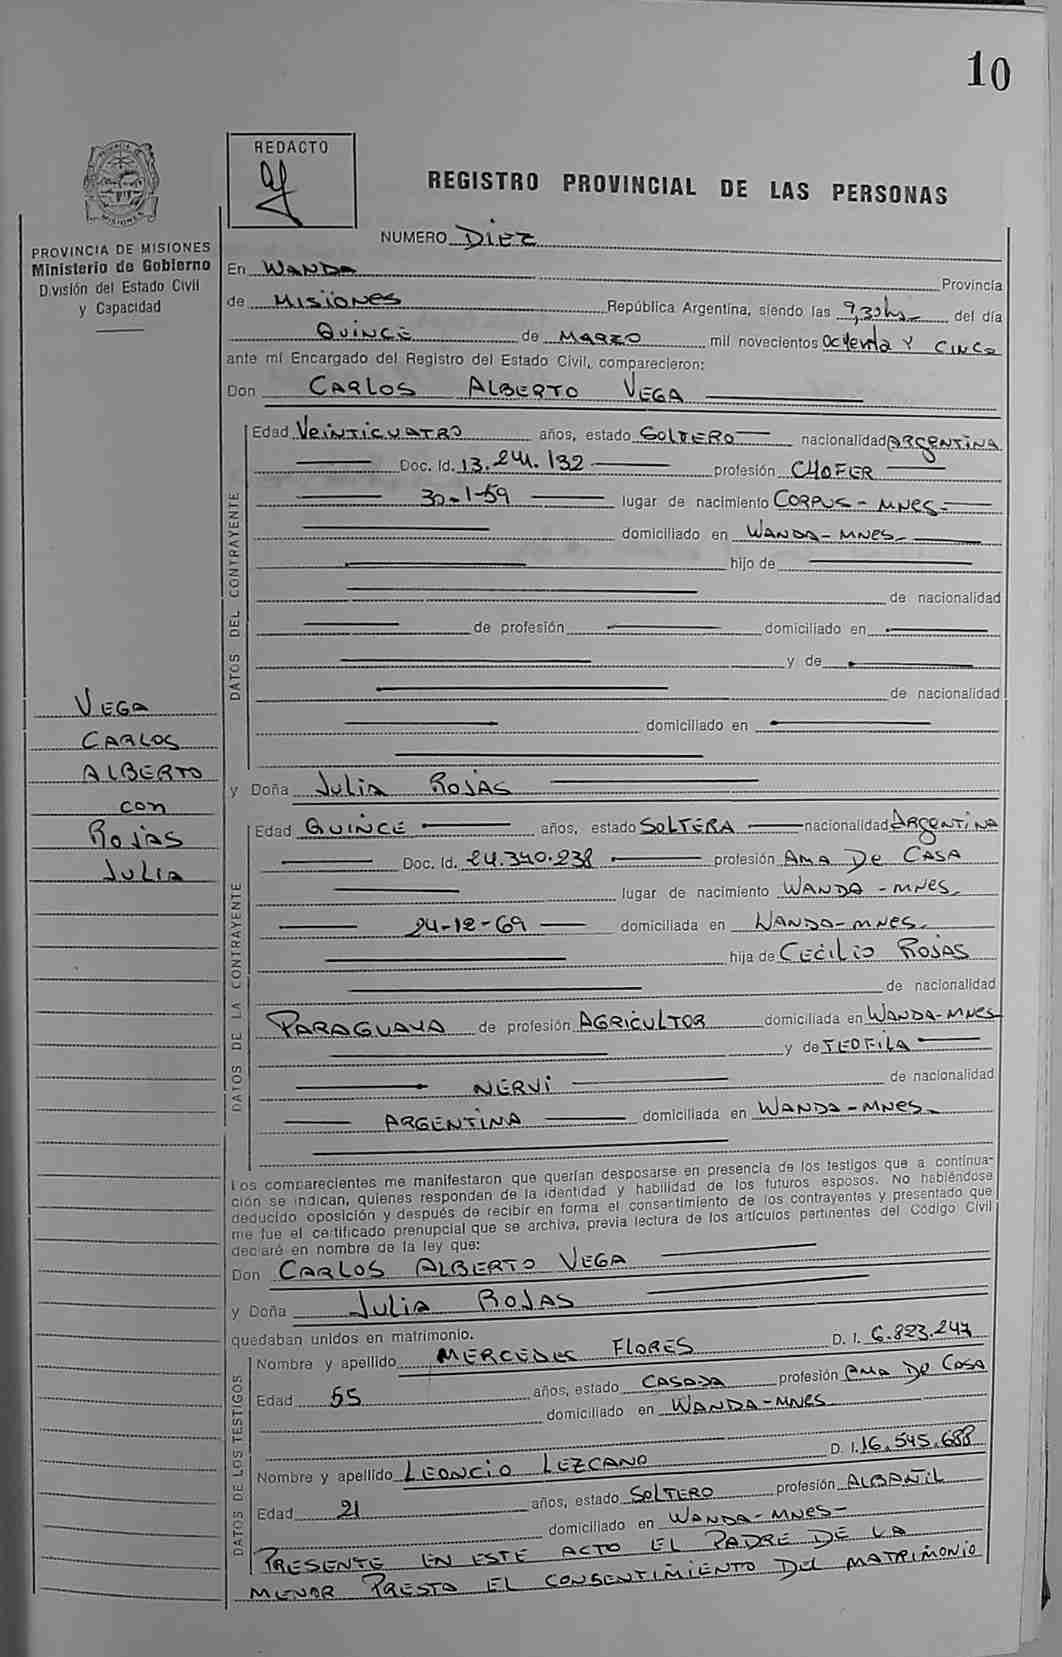 10
REDACTO
REGISTRO PROVINCIAL DE LAS PERSONAS
PROVINCIA DE MISIONES
Ministerio de Gobierno
División del Estado Civil
y Capacidad
NUMERO DiEZ
En WANDA Provincia
de MISIONES República Argentina, siendo las 9,30hs del día
QUINCE de MARZO mil novecientos OCHENTA Y CINCO
ante mí Encargado del Registro del Estado Civil, comparecieron:
Don CARLOS ALBERTO VEGA
DATOS DEL CONTRAYENTE
Edad VEINTICUATRO años, estado SOLTERO nacionalidad ARGENTINA
Doc. Id. 13.241.132 profesión CHOFER
30-1-59 lugar de nacimiento CORPUS - MNES-
domiciliado en WANDA - MNES-
hijo de
de nacionalidad
de profesión domiciliado en
y de
de nacionalidad
domiciliado en
VEGA
CARLOS
ALBERTO
con
ROJAS
JULIA
y Doña JULIA ROJAS
DATOS DE LA CONTRAYENTE
Edad QUINCE años, estado SOLTERA nacionalidad ARGENTINA
Doc. Id. 24.340.238 profesión AMA DE CASA
lugar de nacimiento WANDA - MNES-
24-12-69 domiciliada en WANDA-MNES-
hija de CECILIO ROJAS
de nacionalidad
PARAGUAYA de profesión AGRICULTOR domiciliada en WANDA-MNES
y de TEOFILA
NERVI de nacionalidad
ARGENTINA domiciliada en WANDA-MNES-
Los comparecientes me manifestaron que querían desposarse en presencia de los testigos que a continua-
ción se indican, quienes responden de la identidad y habilidad de los futuros esposos. No habiéndose
deducido oposición y después de recibir en forma el consentimiento de los contrayentes y presentado que
me fue el certificado prenupcial que se archiva, previa lectura de los artículos pertinentes del Código Civil
declaré en nombre de la ley que:
Don CARLOS ALBERTO VEGA
y Doña JULIA ROJAS
quedaban unidos en matrimonio.
DATOS DE LOS TESTIGOS
Nombre y apellido MERCEDES FLORES D. I. 6.823.247
Edad 55 años, estado CASADA profesión AMA DE CASA
domiciliado en WANDA-MNES
Nombre y apellido LEONCIO LEZCANO D. I. 16.545.688
Edad 21 años, estado SOLTERO profesión ALBAÑIL
domiciliado en WANDA-MNES-
PRESENTE EN ESTE ACTO EL PADRE DE LA
MENOR PRESTO EL CONSENTIMIENTO DEL MATRIMONIO